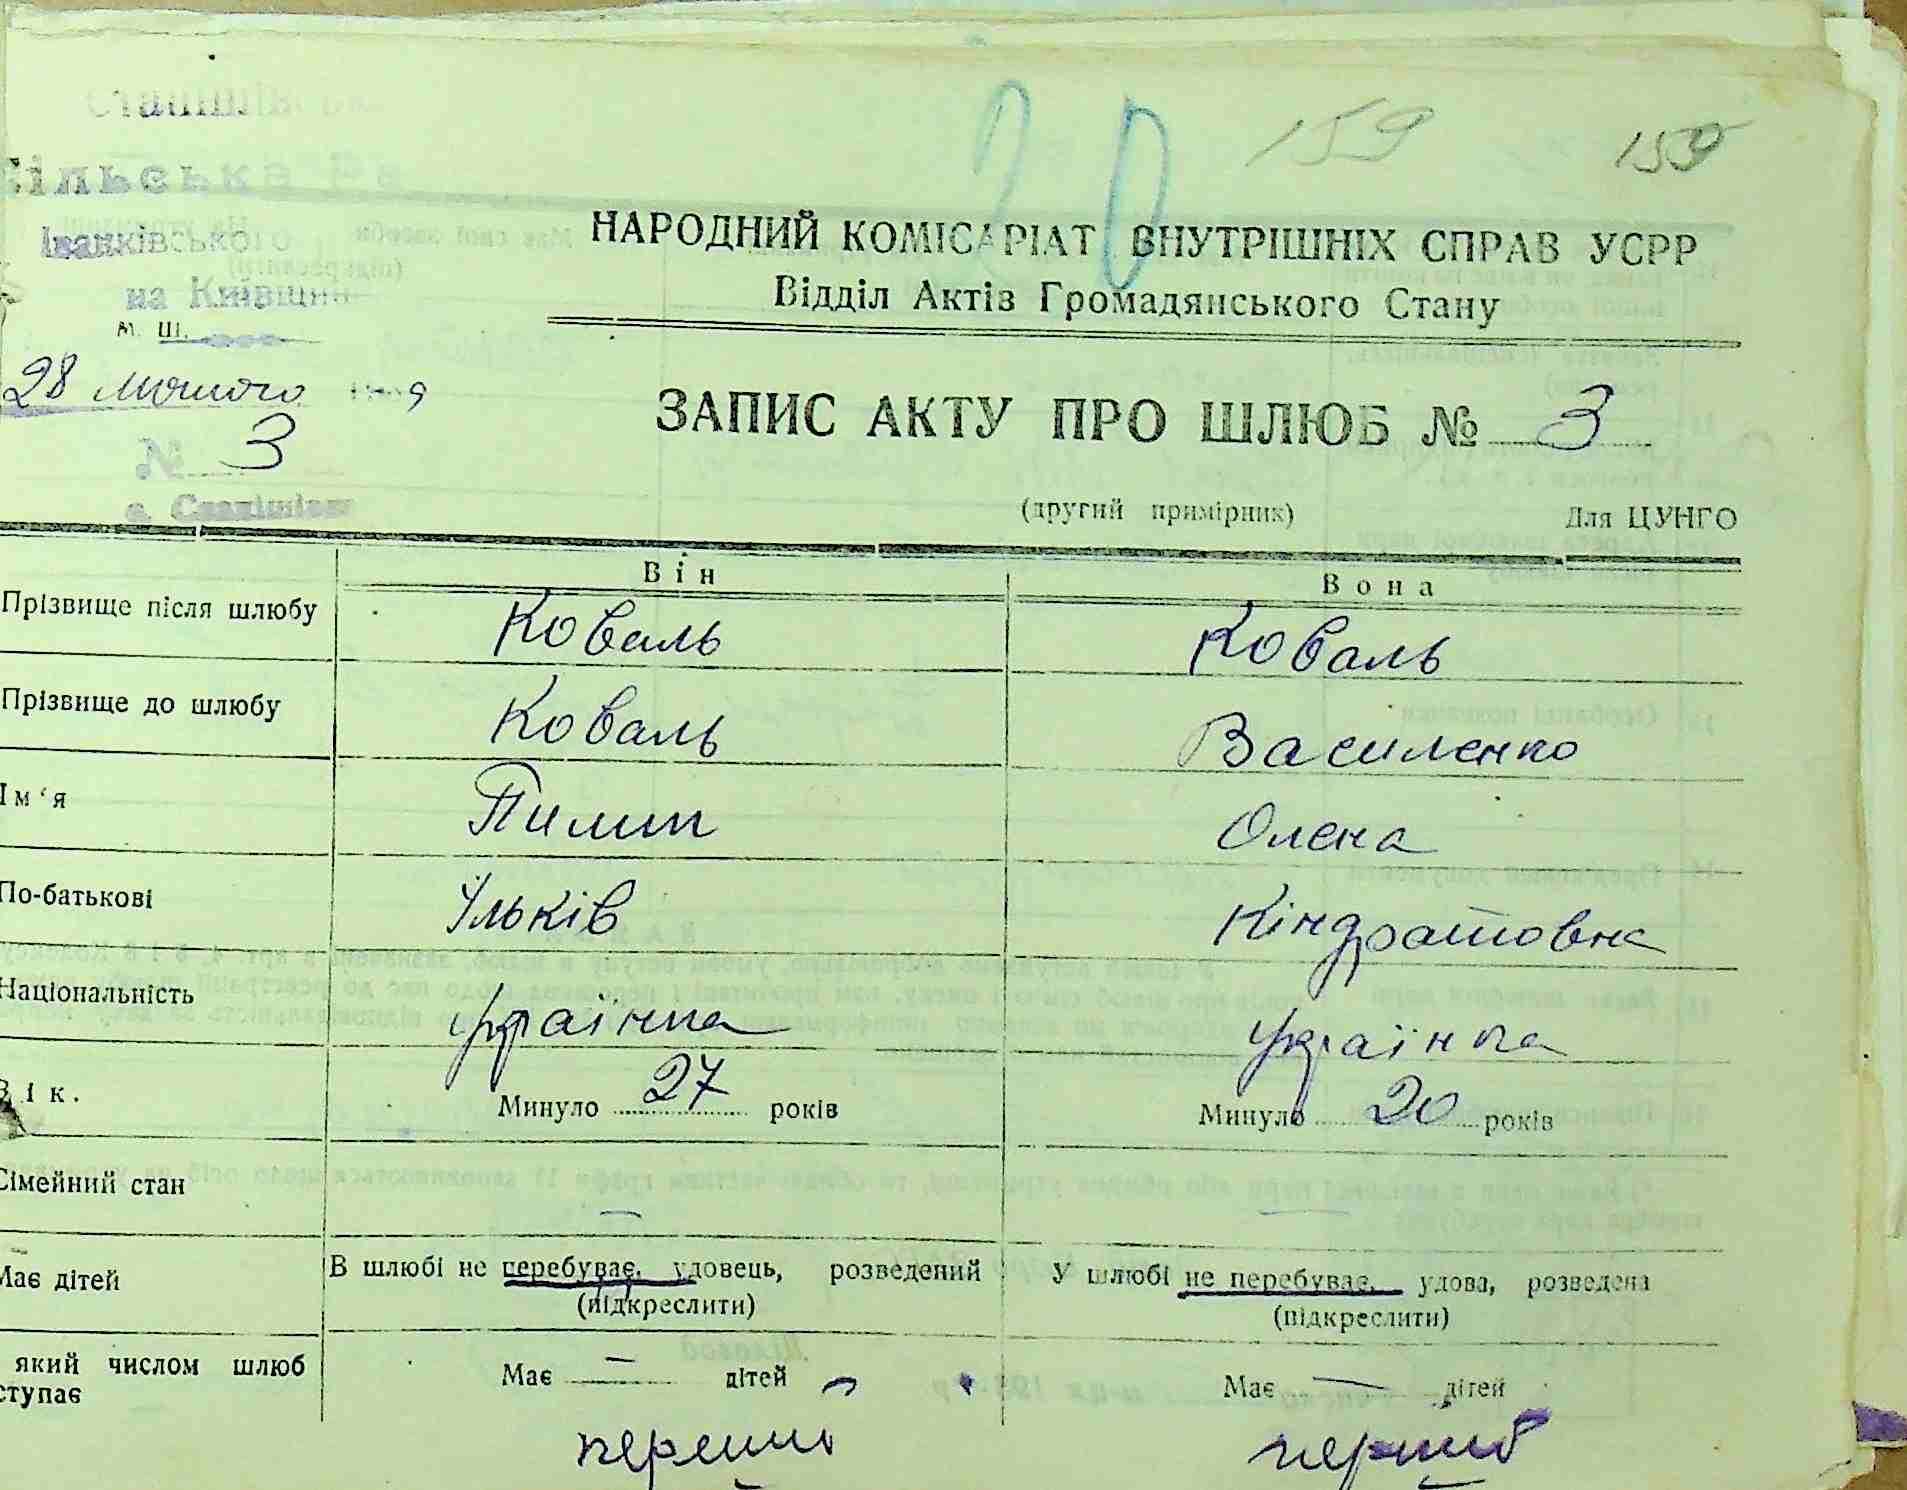 20 159 159
Сільська Ра
Іванківського
на Київщині
НАРОДНИЙ КОМІСАРІАТ ВНУТРІШНІХ СПРАВ УСРР
Відділ Актів Громадянського Стану
28 лютого
№ 3
ЗАПИС АКТУ ПРО ШЛЮБ № 3
(другий примірник) Для ЦУНГО
Він Вона
Прізвище після шлюбу Коваль Коваль
Прізвище до шлюбу Коваль Василенко
Ім‘я Пилип Олена
По-батькові Ільків Кіндратовна
Національність українка Українка
Вік. Минуло 27 років Минуло 20 років
Сімейний стан — —
Має дітей В шлюбі не перебуває, удовець, розведений У шлюбі не перебуває, удова, розведена
(підкреслити) (підкреслити)
який числом шлюб
ступає Має — дітей Має — дітей
перший перший